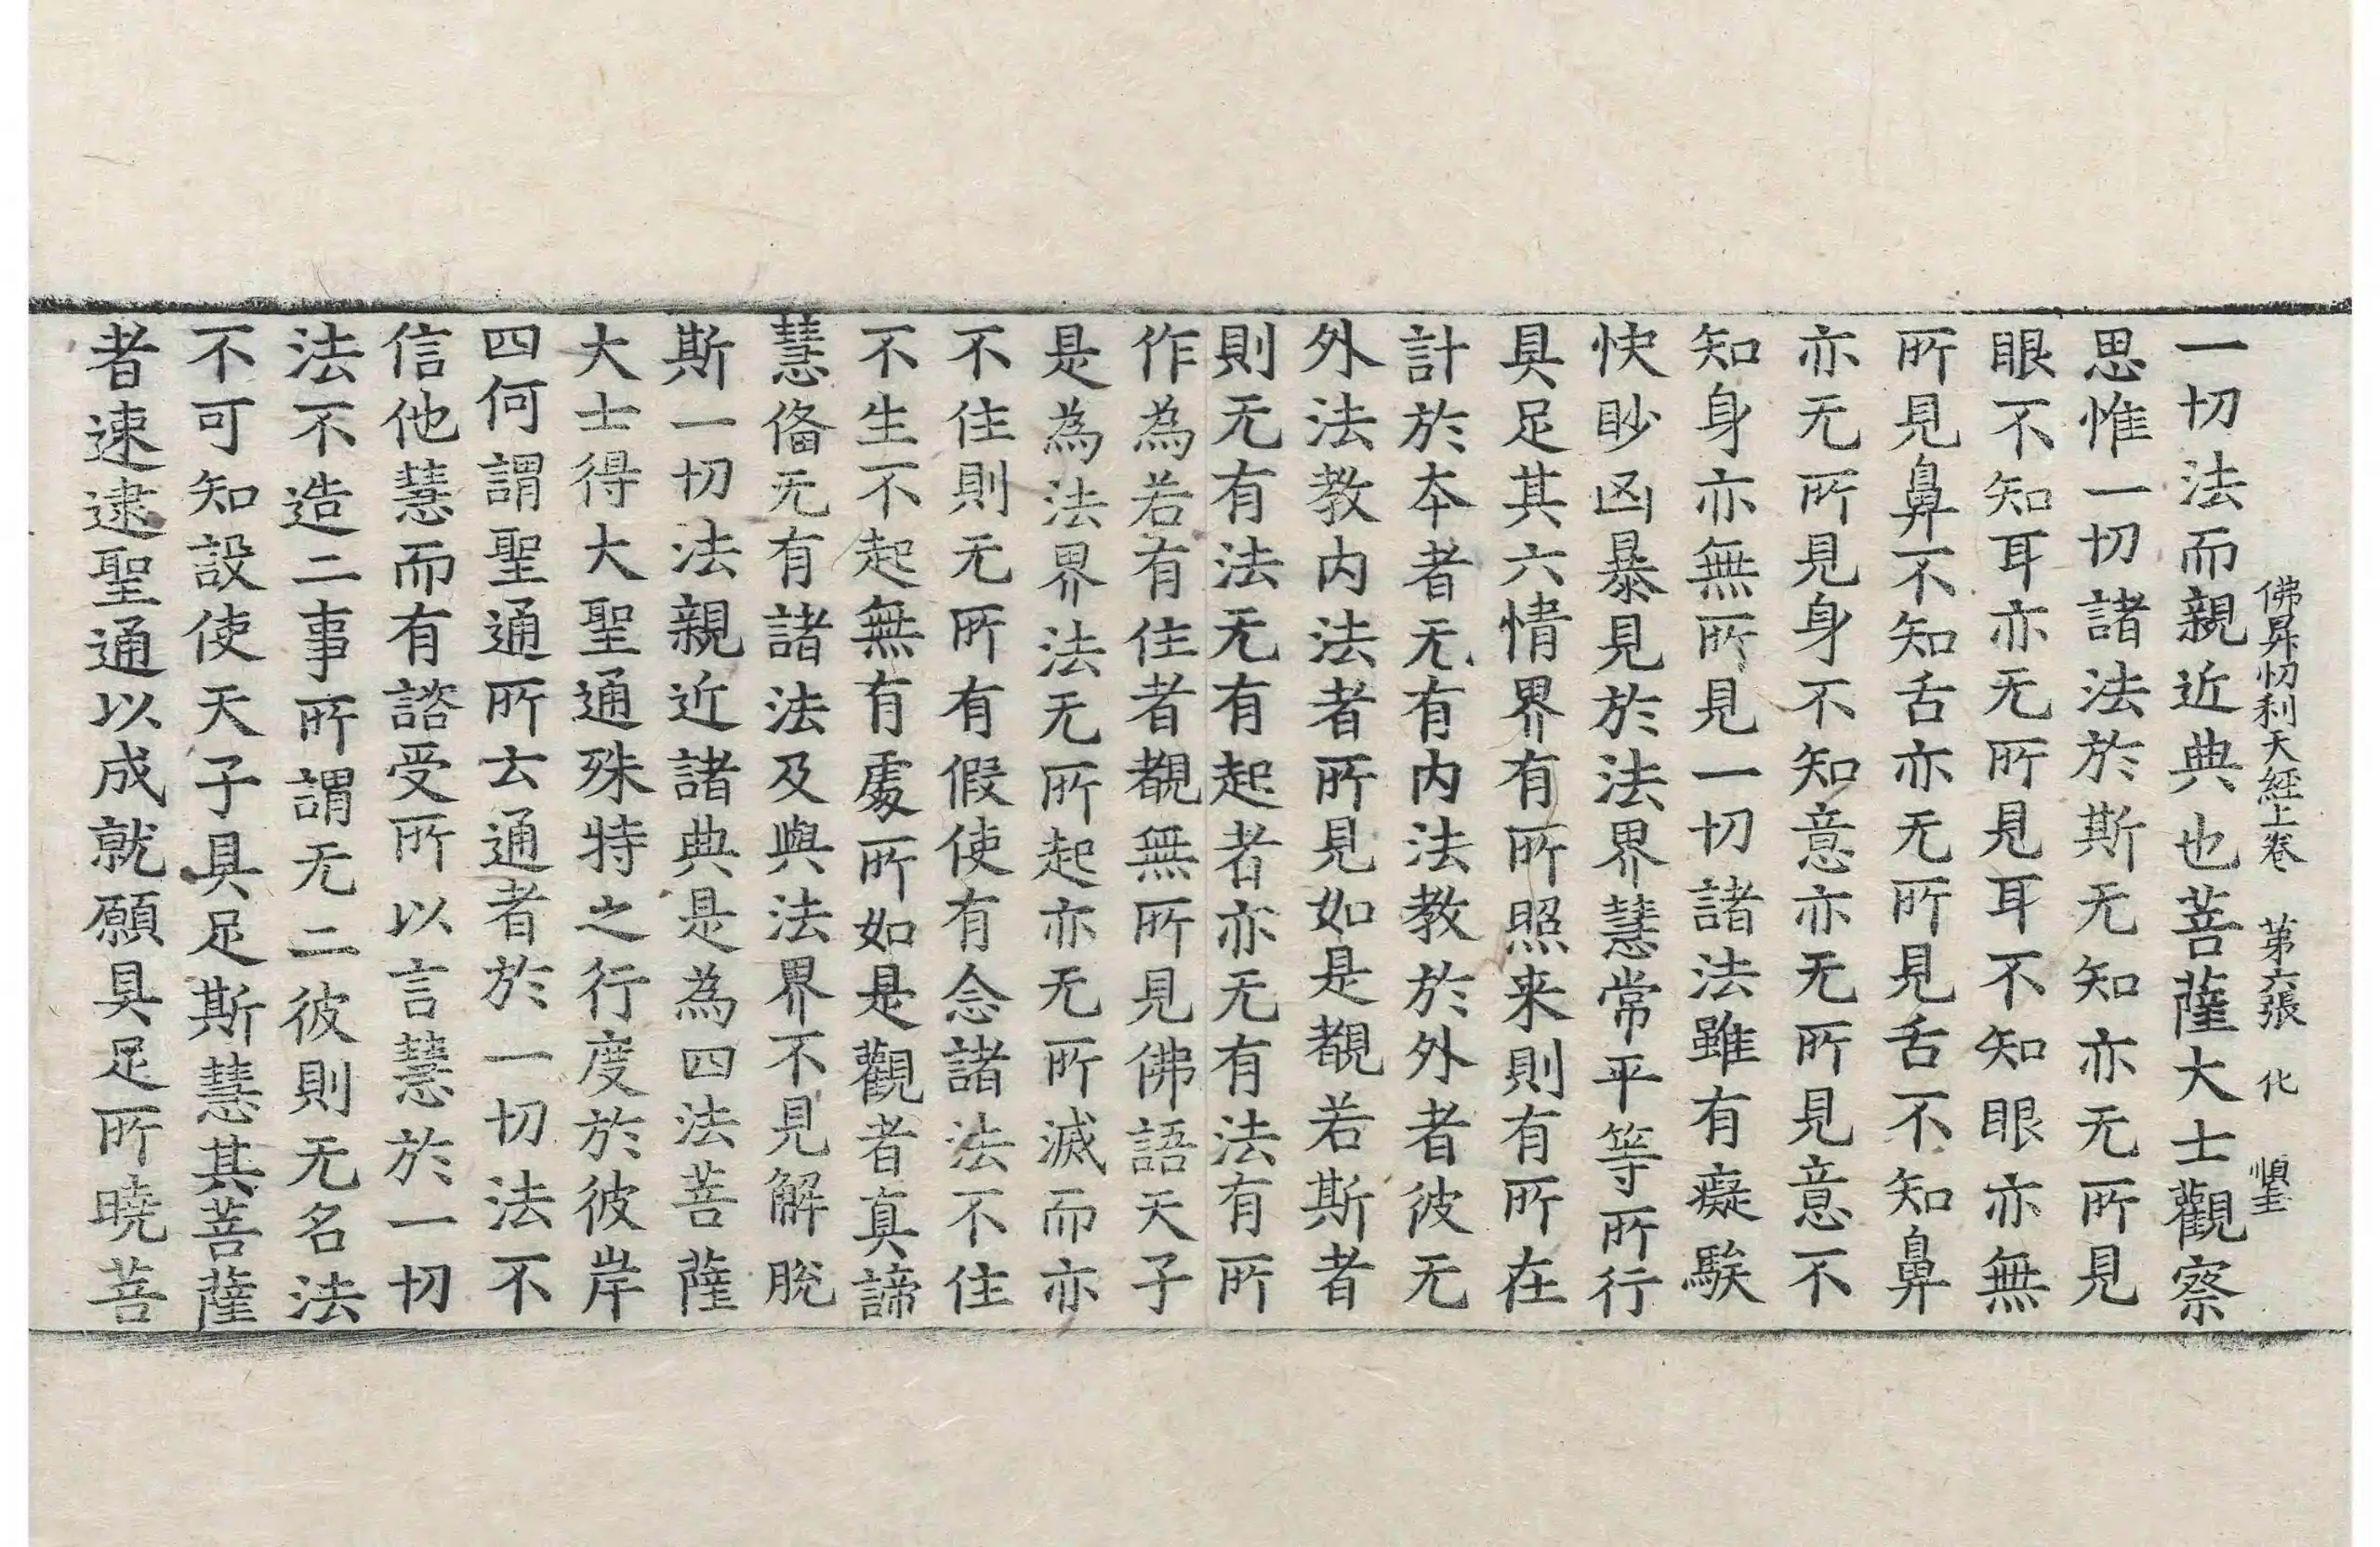 佛昇忉利天經上卷 第六張 化 順圭
一切法而親近典也菩薩大士觀察
思惟一切諸法於斯无知亦无所見
眼不知耳亦无所見耳不知眼亦無
所見鼻不知舌亦无所見舌不知鼻
亦无所見身不知意亦无所見意不
知身亦無所見一切諸法雖有癡騃
快眇凶暴見於法界慧常平等所行
具足其六情界有所照来則有所在
計於本者无有内法教於外者彼无
外法教内法者所見如是覩若斯者
則无有法无有起者亦无有法有所
作為若有住者覩無所見佛語天子
是為法界法无所起亦无所滅而亦
不住則无所有假使有念諸法不住
不生不起無有處所如是觀者真諦
慧俻无有諸法及與法界不見解脫
斯一切法親近諸典是為四法菩薩
大士得大聖通殊特之行度於彼岸
四何謂聖通所云通者於一切法不
信他慧而有諮受所以言慧於一切
法不造二事所謂无二彼則无名法
不可知設使天子具足斯慧其菩薩
者速逮聖通以成就願具足所曉菩